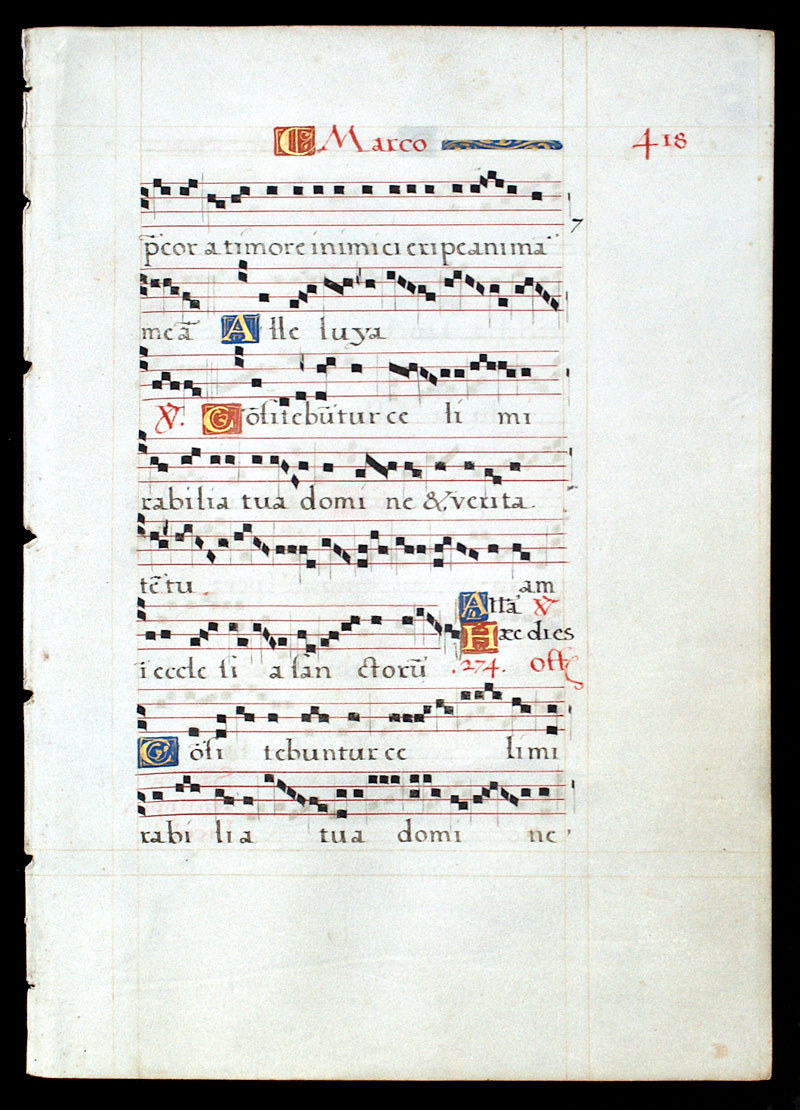 E Marco 418
p̄cor a timore inimici eripe animā
meā Alle luya
℣. Cōfitebūtur ce li mi
rabilia tua domi ne & verita
tē tu am
Alla ℣
ī eccle si a san ctorū
Hæc dies
.274. Off
Cōfi tebuntur ce li mi
rabi lia tua domi ne